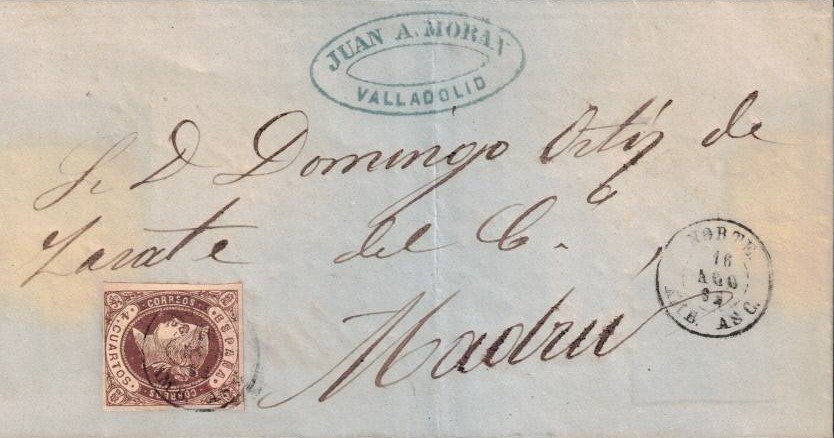 JUAN A. MORAN
VALLADOLID
Sr. D. Domingo Ortiz de
Zarate del C.
Madrid
NORTE
16
AGO
62
AMB. ASC.
CORREOS
ESPAÑA
4 CUARTOS
CORREOS